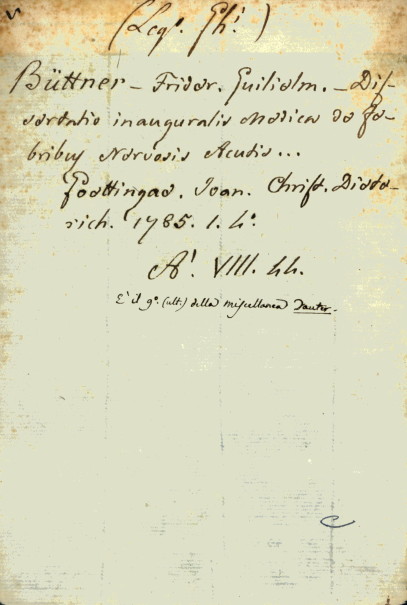 (Leg.º Gh.i)
Büttner - Frider. Guilielm. - Dis-
sertatio inauguralis Medica de fe-
bribus Nervosis Acutis...
Goettingae. Ioan. Christ. Diete-
rich. 1785. 1. 4.º
A'. VIII. 44.
E' il 9.º (ult.) della miscellanea Dauter.